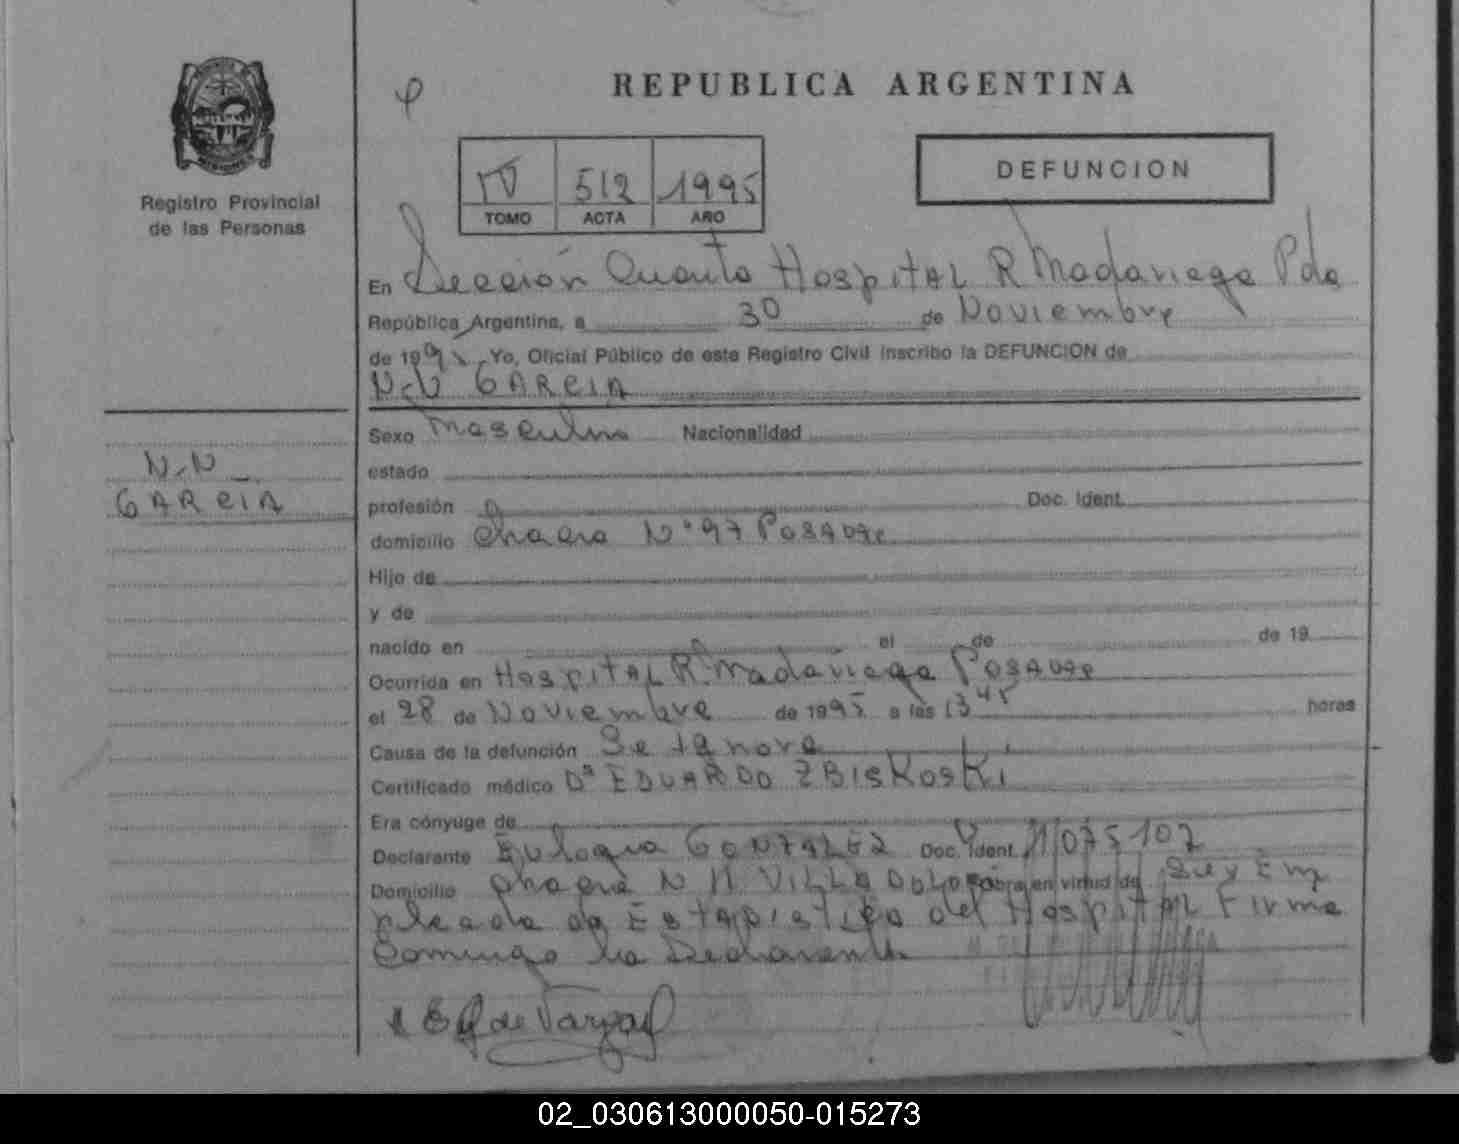 REPUBLICA ARGENTINA
Registro Provincial
de las Personas
IV 512 1995
TOMO ACTA AÑO
DEFUNCION
En Sección Cuarta Hospital R Madariaga Pdas
República Argentina, a 30 de Noviembre
de 1995 Yo, Oficial Público de este Registro Civil inscribo la DEFUNCION de
N.N GARCIA
N.N
GARCIA
Sexo Masculino Nacionalidad
estado
profesión Doc. Ident.
domicilio Chacra Nº 97 Posadas
Hijo de
y de
nacido en el de de 19
Ocurrida en Hospital R. Madariaga Posadas
el 28 de Noviembre de 1995 a las 13 45 horas
Causa de la defunción Se ignora
Certificado médico Dr EDUARDO ZBISKOSKI
Era cónyuge de
Declarante Eulogia GONZALEZ Doc. Ident. 11075102
Domicilio Chacra N 11 VILLA Obra en virtud de Ser Em
pleada de Estadistica del Hospital Firma
Conmigo la Declarante
de Vargas
02_030613000050-015273